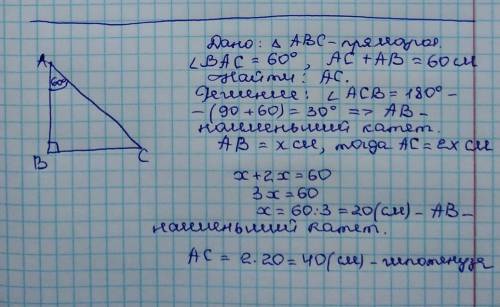 Дано: △ ABC - прямоуг.
∠BAC = 60°, AC + AB = 60 см
Найти: AC.
Решение: ∠ACB = 180° -
- (90 + 60) = 30° => AB -
наименьший катет.
AB = x см, тогда AC = 2x см
x + 2x = 60
3x = 60
x = 60 : 3 = 20 (см) - AB -
наименьший катет.
AC = 2 · 20 = 40 (см) - гипотенуза
A
60°
B
C